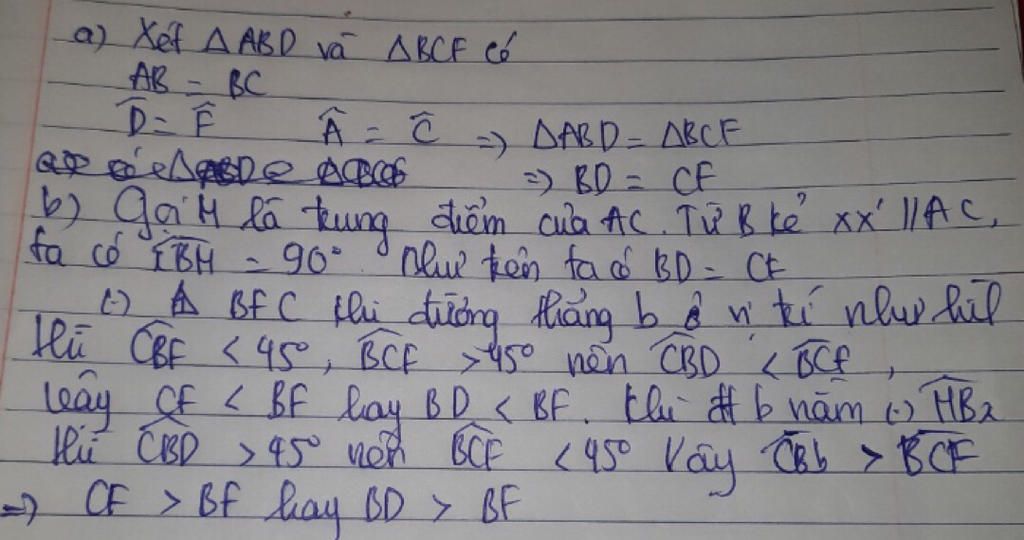 a) Xét ΔABD và ΔBCF có
AB = BC
D̂ = F̂ Â = Ĉ => ΔABD = ΔBCF
=> BD = CF
b) Gọi H là trung điểm của AC. Từ B kẻ xx' // AC,
ta có = 90° như trên ta có BD = CF
(-) Δ BFC khi đường thẳng b ở vị trí như hìh
thì CBF < 45°, BCF > 45° nên CBD < BCF,
vậy CF < BF hay BD < BF. khi đt b nằm (-) HBx
thì CBD > 45° nên BCF < 45° Vậy CBb > BCF
=> CF > BF hay BD > BF